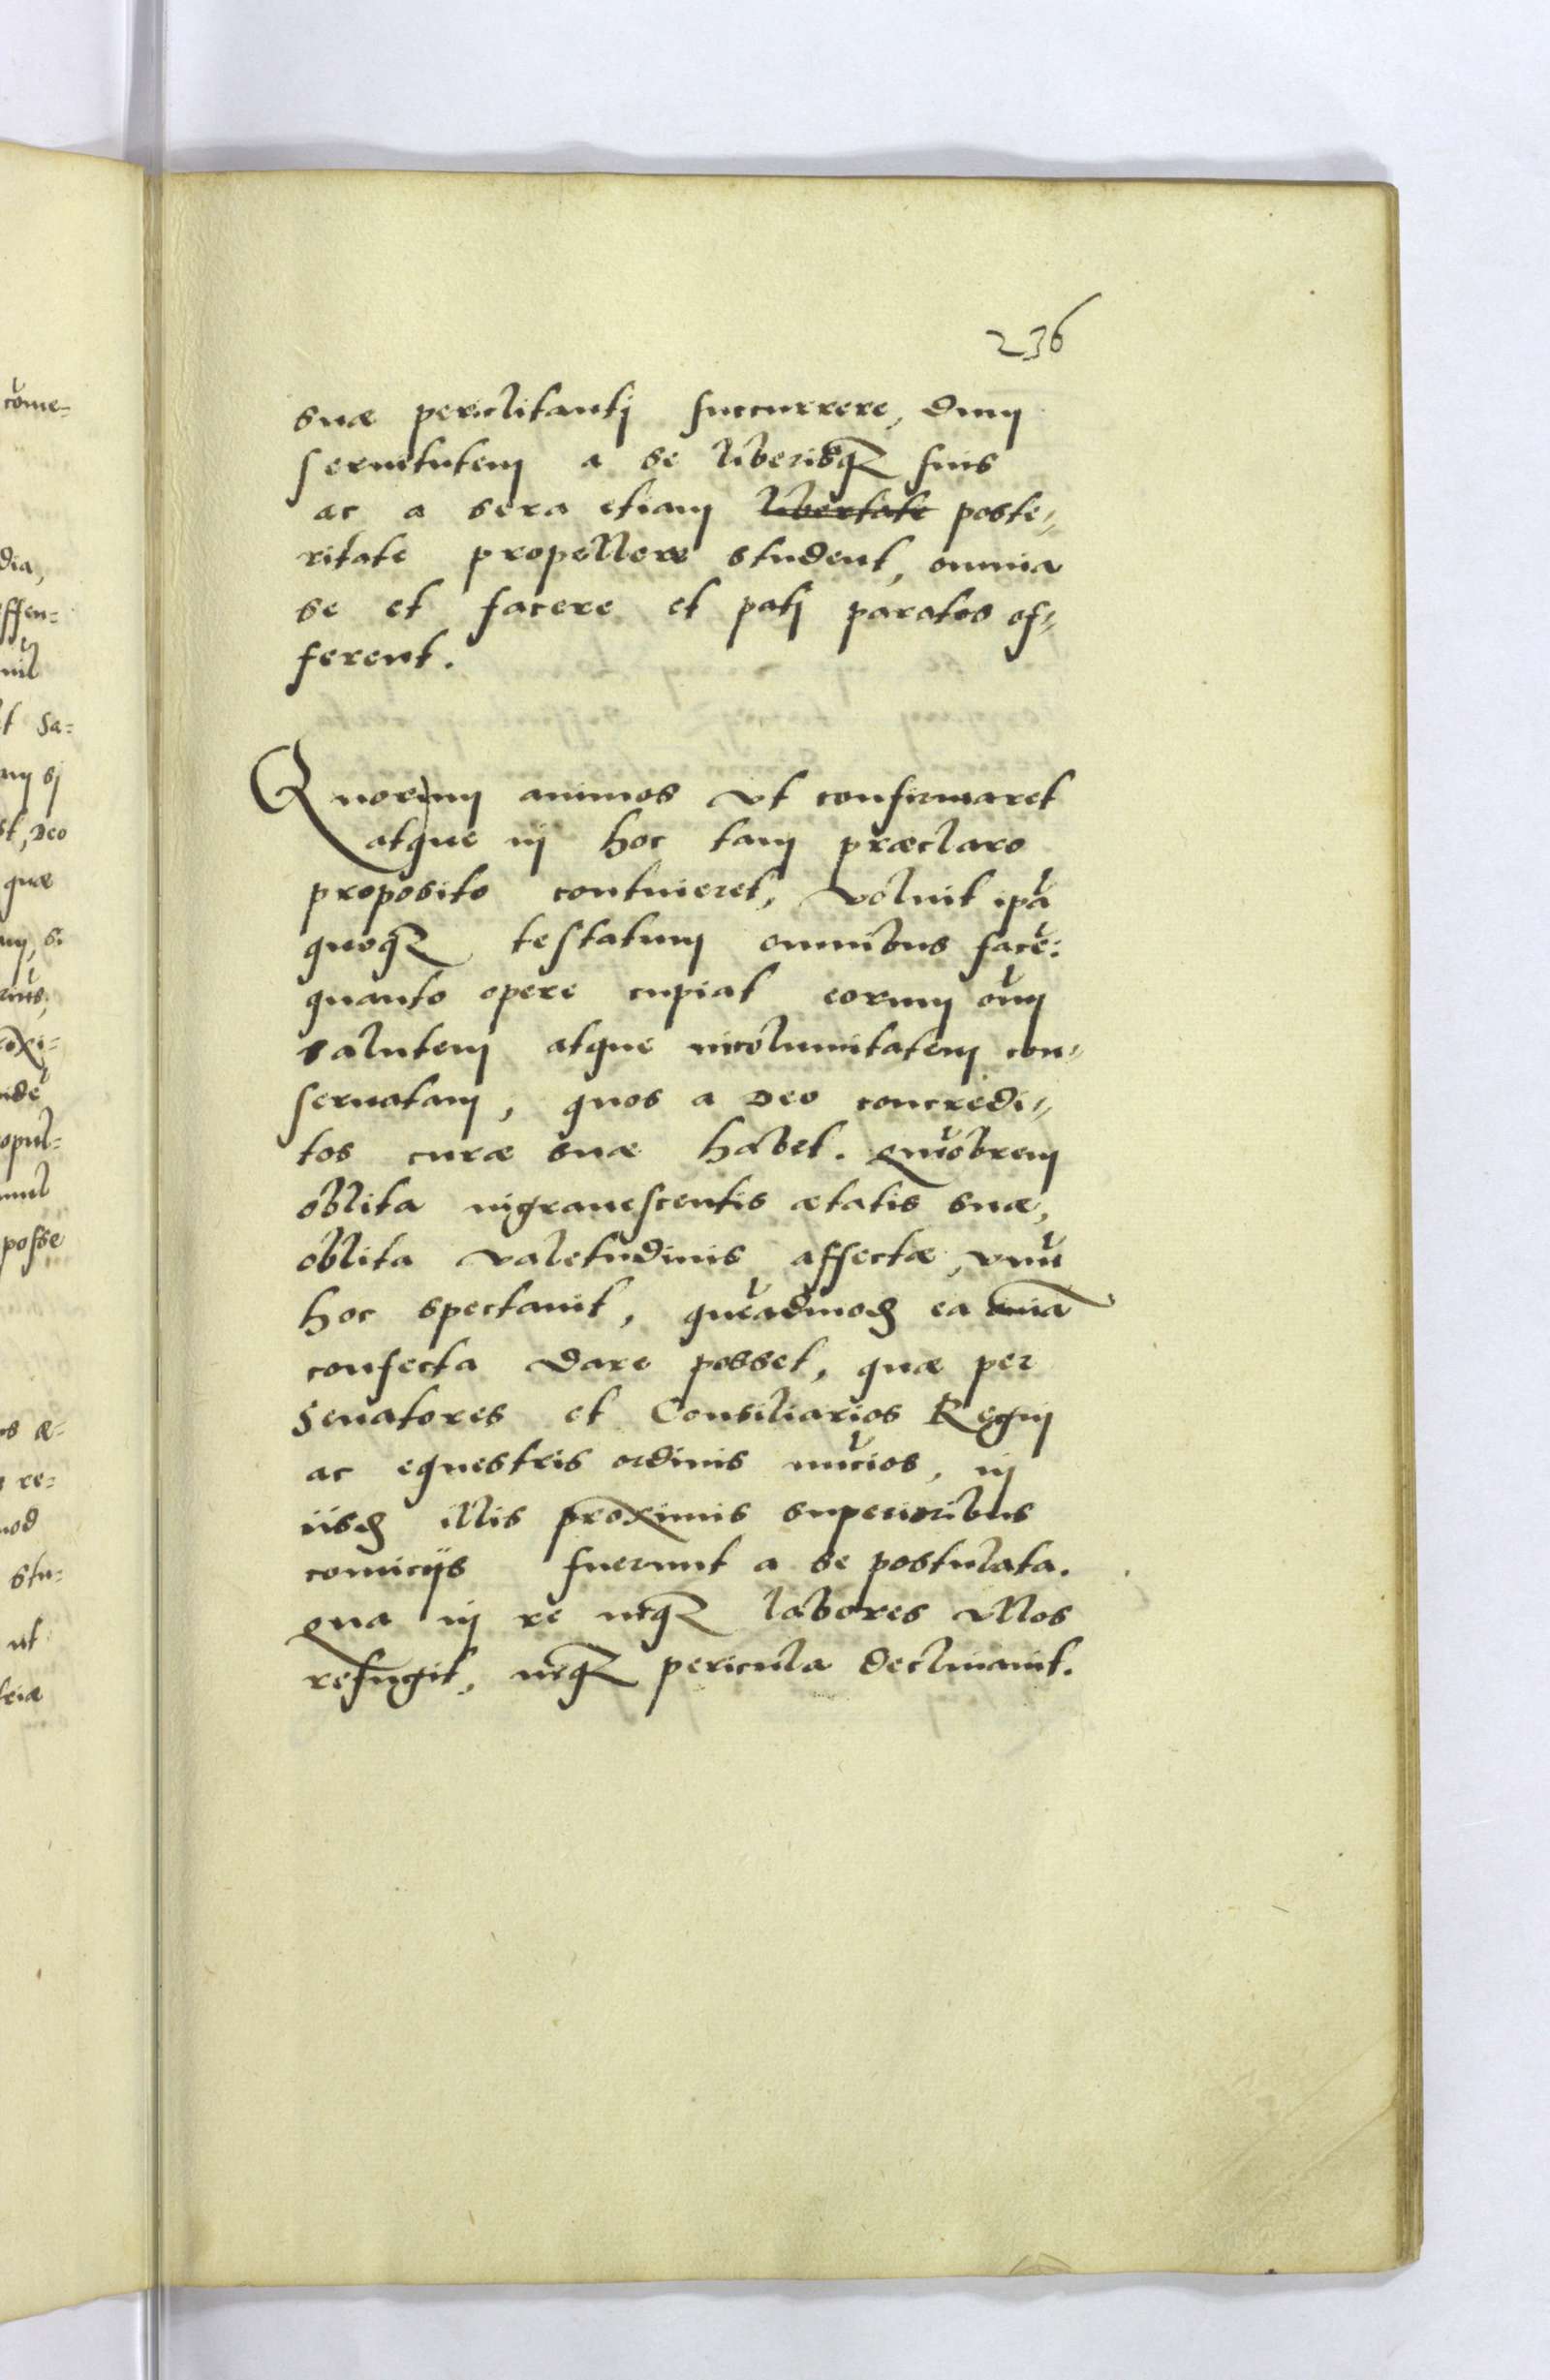 236
suæ periclitantj succurrere, dum
seruitutem a se liberisq₃ suis
ac a sera etiam libertate poste-
ritate propellere student, omnia
se et facere et patj paratos of-
ferent.
Quorum animos vt confirmaret
atque in hoc tam præclaro
proposito contineret, voluit ipa
quoq₃ testatum omnibus facē:
quanto opere cupiat eorum oīm
salutem atque incolumitatem con-
seruatam, quos a Deo concredi-
tos curæ suæ habet. quāobrem
oblita ingrauescentis ætatis suæ,
oblita valetudinis affectæ, vnū
hoc spectauit, quēadmod ea omīa
confecta dare posset, quæ per
Senatores et Consiliarios Regnj
ac equestris ordinis nūcios, in
iisd illis proximis superioribus
comicijs fuerunt a se postulata.
qua in re neq₃ labores vllos
refugit, neq₃ pericula declinauit.
cōme-
dia,
ffen-
t Sa-
sj
st, Deo
quæ
opul-
posse
re-
stu-
ut